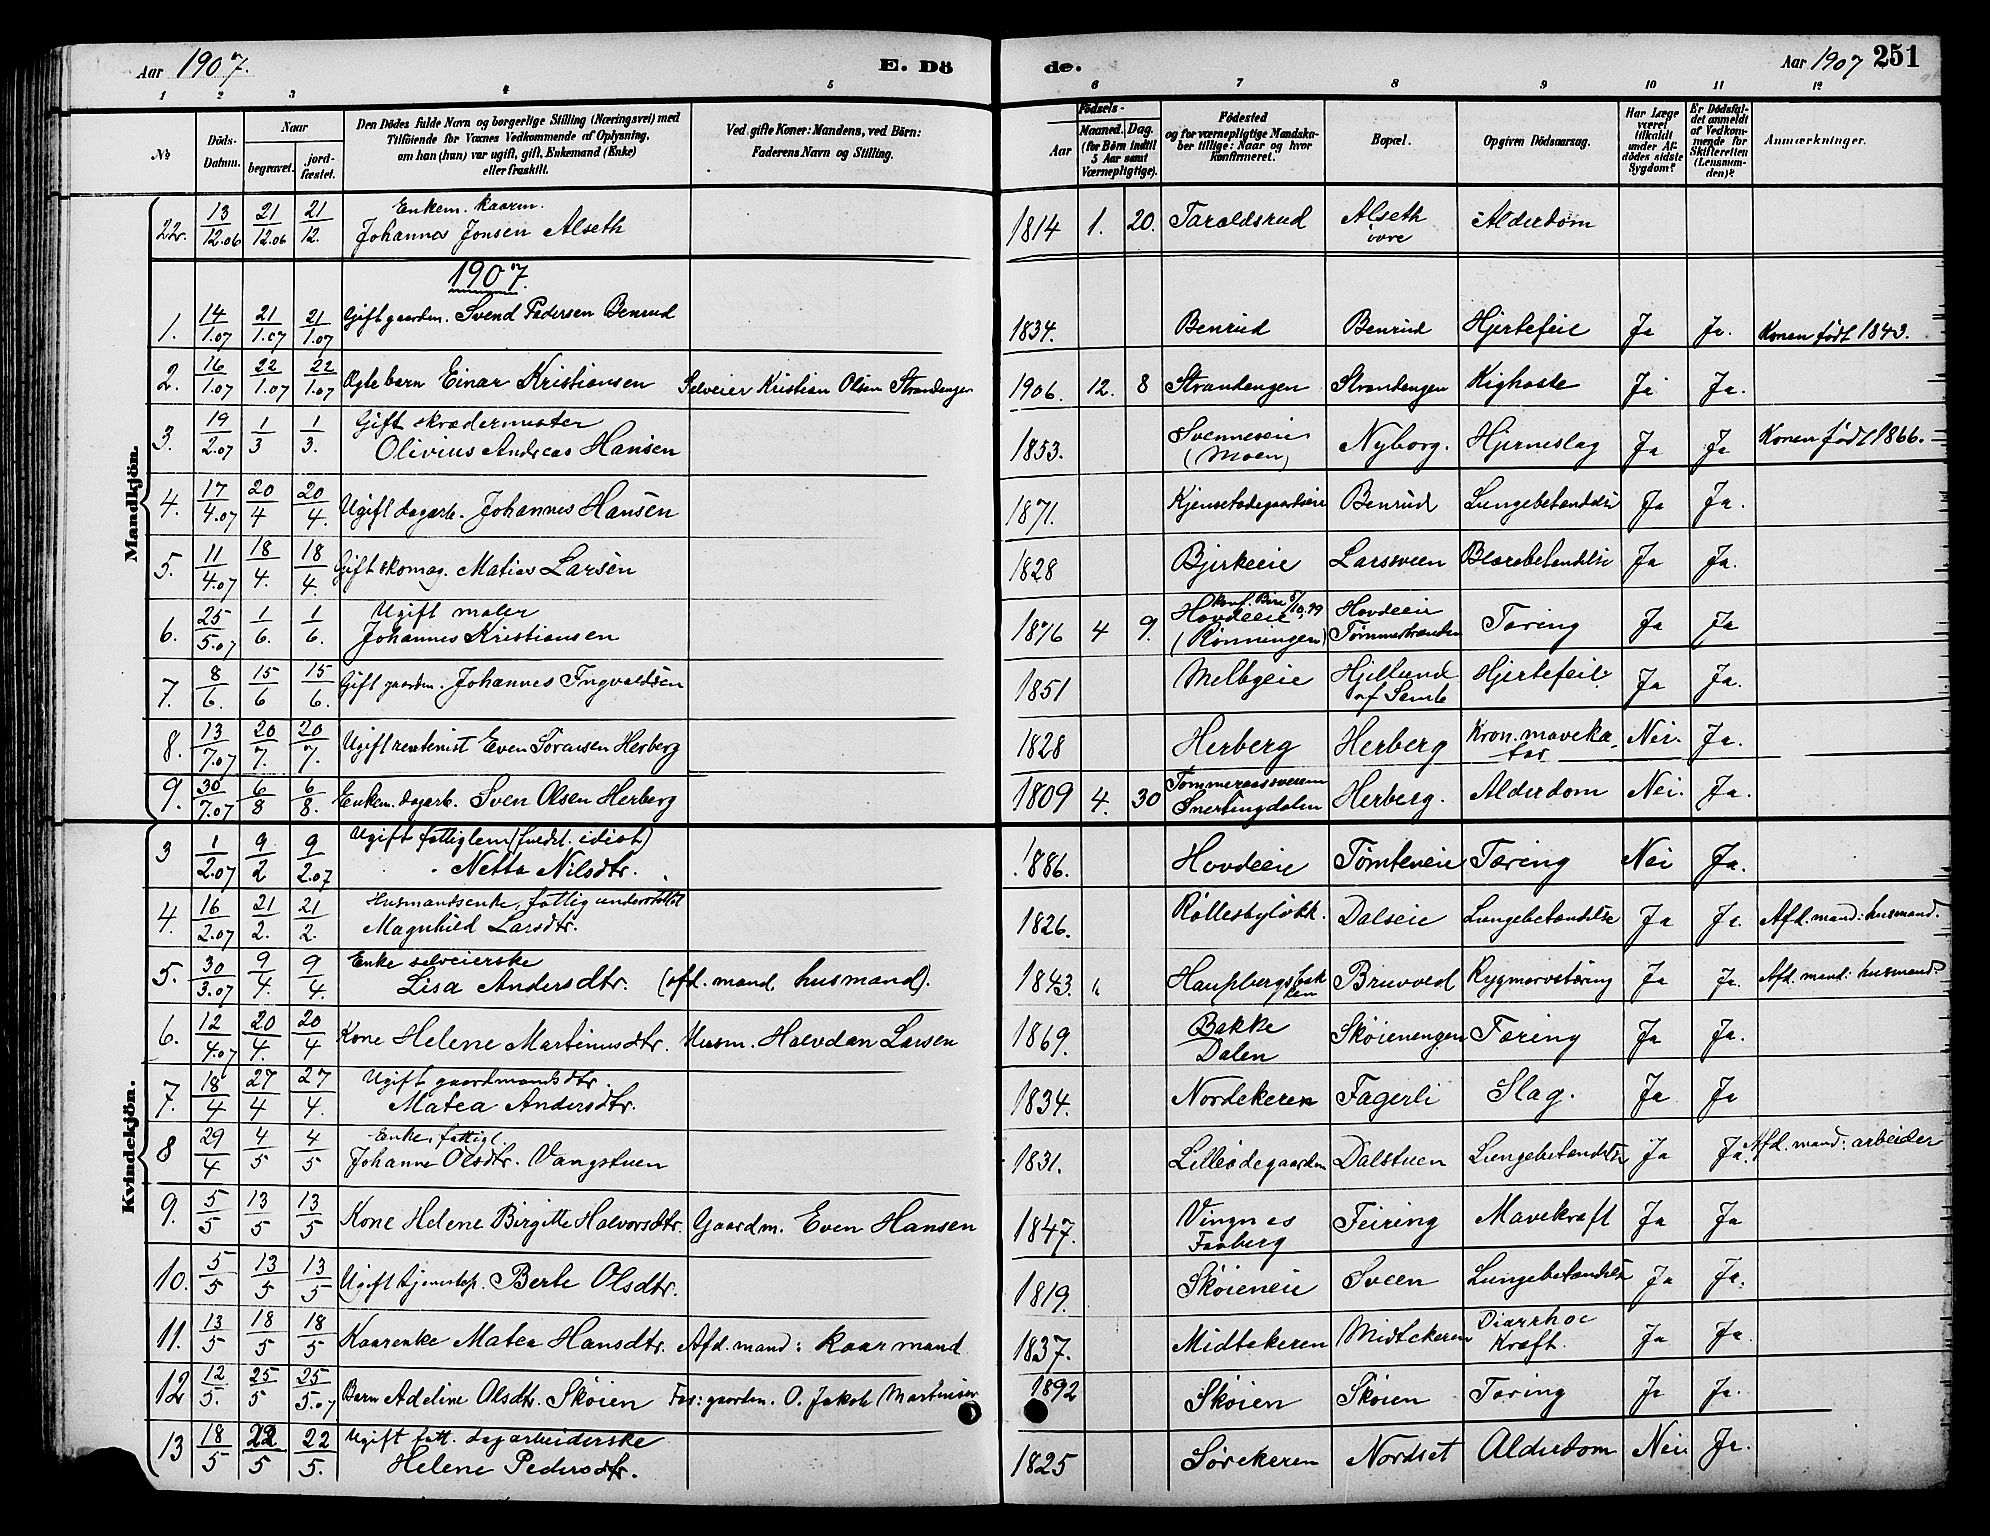 Aar 1907.
E. Dö
de.
Aar 1907 251
1 2 3 4 5 6 7 8 9 10 11 12
№
Döds-Datum.
Naar
begravet.
jordfæstet.
Den Dödes fulde Navn og borgerlige Stilling (Næringsvei) med
Tilföiende for Voxnes Vedkommende af Oplysning,
om han (hun) var ugift, gift, Enkemand (Enke)
eller fraskilt.
Ved gifte Koner: Mandens, ved Börn:
Faderens Navn og Stilling.
Födsels-
Aar
Maaned. Dag.
(for Börn indtil
5 Aar samt
Værnepligtige).
Födested
og for værnepligtige Mandskaber tillige: Naar og hvor
konfirmeret.
Bopæl.
Opgiven Dödsaarsag.
Har Læge været tilkaldt under Afdödes sidste Sygdom?
Er Dödsfaldet anmeldt af Vedkommende for Skifteretten (Lensmanden)?
Anmærkninger.
Mandkjön.
22. 13/12.06 21/12.06 21/12. Enkem. kaarm. Johannes Jonsen Alseth 1814 1. 20. Taraldsrud Alseth övre Alderdom
1907.
1. 14/1.07 21/1.07 21/1.07 Gift gaardm. Svend Pedersen Benrud 1834. Benrud Benrud Hjertefeil Ja Ja. Konen født 1843.
2. 16/1.07 22/1.07 22/1.07 Ægte barn Einar Kristiansen Selveier Kristian Olsen Strandengen 1906. 12. 8 Strandengen Strandengen Kighoste Ja Ja.
3. 19/2.07 1/3 1/3. Gift skrædermester Olivius Andreas Hansen 1853. Svenneseie (Moen) Nyborg. Hjerneslag Ja Ja Konen født 1866.
4. 17/4.07 20/4 20/4. Ugift dagarb. Johannes Hansen 1871. Benrud Lungebetændelse Ja Ja.
5. 11/4.07 18/4. 18/4. Gift skomag. Matias Larsen 1828 Bjerkeeie Larsveen Blærebetændelse Ja Ja.
6. 25/5.07 1/6. 1/6. Ugift maler Johannes Kristiansen 1876 4 9. Hovdeeie (Rønningen) Hovdeeie Tømmerstranden Tæring Ja Ja
7. 8/6. 15/6 15/6. Gift gaardm. Johannes Ingvaldsen 1851 Melbyeie Hjellund af Semb Hjertefeil. Ja Ja.
8. 13/7.07 20/7. 20/7. Ugift rentenist Even Sørensen Herberg 1828 Herberg Herberg Kron. mavekatar Nei. Ja.
9. 30/7.07 6/8 6/8. Enkem. dagarb. Sven Olsen Herberg 1809 4. 30 Tømmeraassveen Snertingdalen Herberg. Alderdom Nei. Ja.
Kvindekjön.
3 1/2.07 9/2 9/2.07 Ugift fattiglem (fuldst. idiot) Netta Nilsdtr. 1886. Hovdeeie Tømteeie Tæring Nei Ja.
4. 16/2.07 21/2. 21/2. Husmandsenke, fattig understøttet Magnhild Larsdtr. 1826. Røllesbyløkk. Dalseie Lungebetændelse Ja Ja. Afd. mand: husmand.
5. 30/3.07 9/4. 9/4. Enke selveierske Lisa Andersdtr. (afd. mand husmand). 1843. Haugsbergsbakken Bruvved Rygmarvstæring Ja Ja. Afd. mand: husmand.
6. 12/4.07 20/4. 20/4 Kone Helene Martinusdtr. Husm. Halvdan Larsen 1869. Bakke Dalen Skøienengen Tæring Ja Ja.
7. 18/4 27/4 27/4. Ugift gaardmandsdtr. Matea Andersdtr. 1834. Nordekeren Fagerli Slag. Ja Ja
8 29/4 4/5 4/5 Enke, fattigl. Johanne Olsdtr. Vangstuen 1831. Lilleødegaarden Dalstuen Lungebetændelse Ja Ja. Afd. mand: arbeider
9. 5/5 13/5 13/5 Kone Helene Birgitte Halvorsdtr. Gaardm. Even Hansen 1847. Vingnes Faaberg Feiring Mavekræft Ja Ja
10. 5/5 13/5 13/5 Ugift tjenestep. Berte Olsdtr. 1819. Skøieneie Sveen Lungebetændelse Ja Ja.
11. 13/5 18/5 18/5 Kaarenke Matea Hansdtr. Afd. mand: kaarmand 1837. Midtekeren Midtekeren Diarrhoe Kræft. Ja Ja.
12 12/5. 25/5 25/5.07 Barn Adeline Olsdtr. Skøien Far: gaardm. O. Jakob Martinsen 1892 Skøien Skøien Tæring Ja Ja.
13 18/5 22/5 22/5. Ugift fatt. dagarbeiderske Helene Pedersdtr. 1825 Sørekeren Nordset Alderdom Nei Ja.